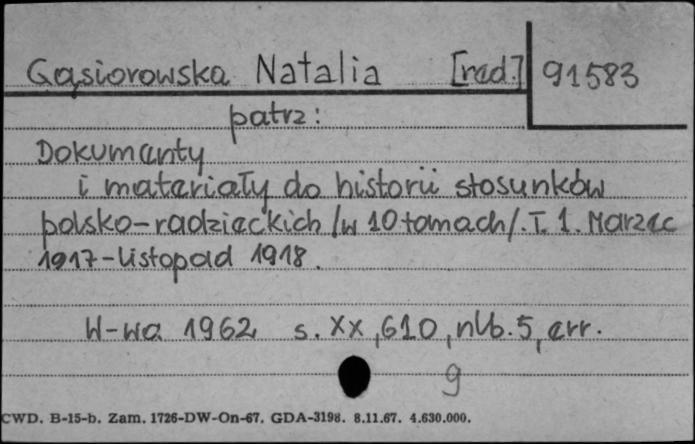 Gąsiorowska Natalia [red.] 91583
patrz:
Dokumenty
i materiały do historii stosunków
polsko-radzieckich /w 10 tomach/. T. 1. Marzec
1917-listopad 1918.
W-wa 1962 s. XX, 610, nlb. 5, err.
9
CWD. B-15-b. Zam. 1726-DW-On-67. GDA-3198. 8.11.67. 4.630.000.